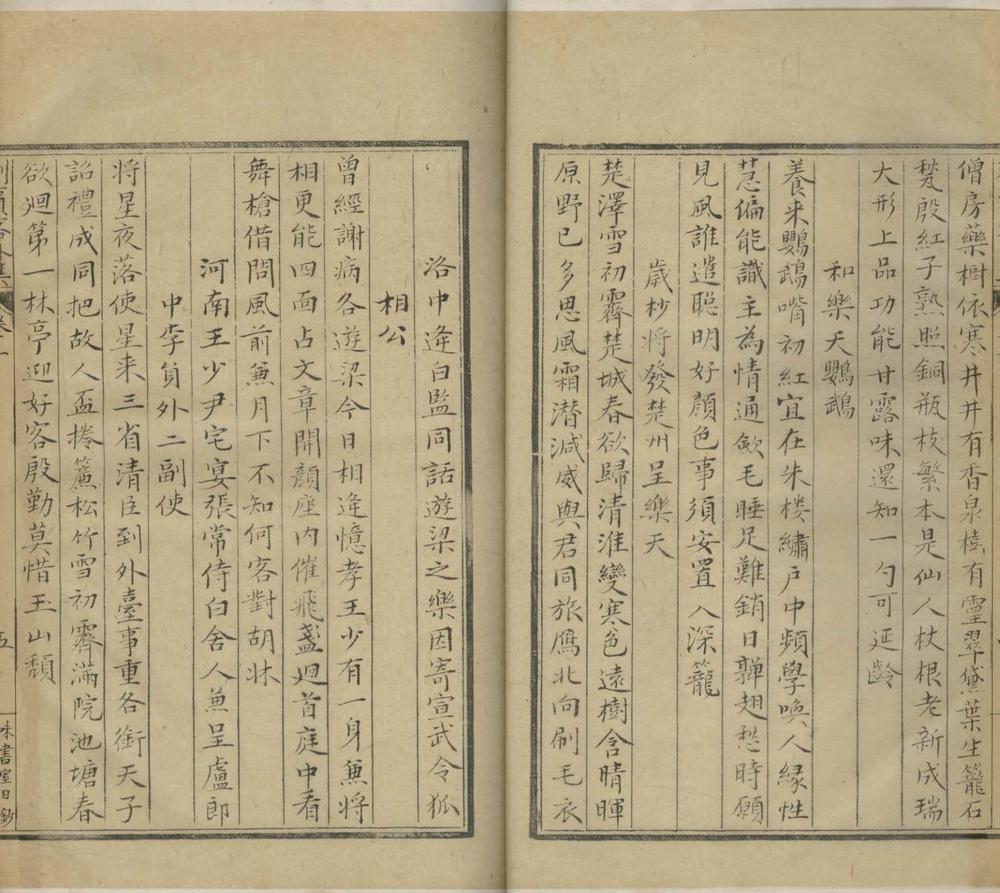 僧房藥樹依寒井井有香泉樹有靈翠黛葉生籠石
甃殷紅子熟照銅瓶枝繁本是仙人杖根老新成瑞
犬形上品功能甘露味還知一勺可延齡
和樂天鸚鵡
養来鸚鵡觜初紅宜在朱楼繡戶中頻學喚人緣性
慧偏能識主為情通歛毛睡足難銷日嚲翅愁時願
見風誰遣聰明好顏色事須安置入深籠
歲杪將發楚州呈樂天
楚澤雪初霽楚城春欲歸清淮變寒色遠樹含晴暉
原野已多思風霜潛減威與君同旅鴈北向刷毛衣
洛中逢白監同話遊梁之樂因寄宣武令狐
相公
曾經謝病各遊梁今日相逢憶孝王少有一身兼將
相更能四面占文章開顏座內催飛盞廻首庭中看
舞槍借問風前兼月下不知何客對胡牀
河南王少尹宅宴張常侍白舍人兼呈盧郎
中李負外二副使
将星夜落使星来三省清臣到外臺事重各銜天子
詔禮成同把故人盃捲簾松竹雪初霽滿院池塘春
欲廻第一林亭迎好客殷勤莫惜玉山頹
五
味書室日鈔